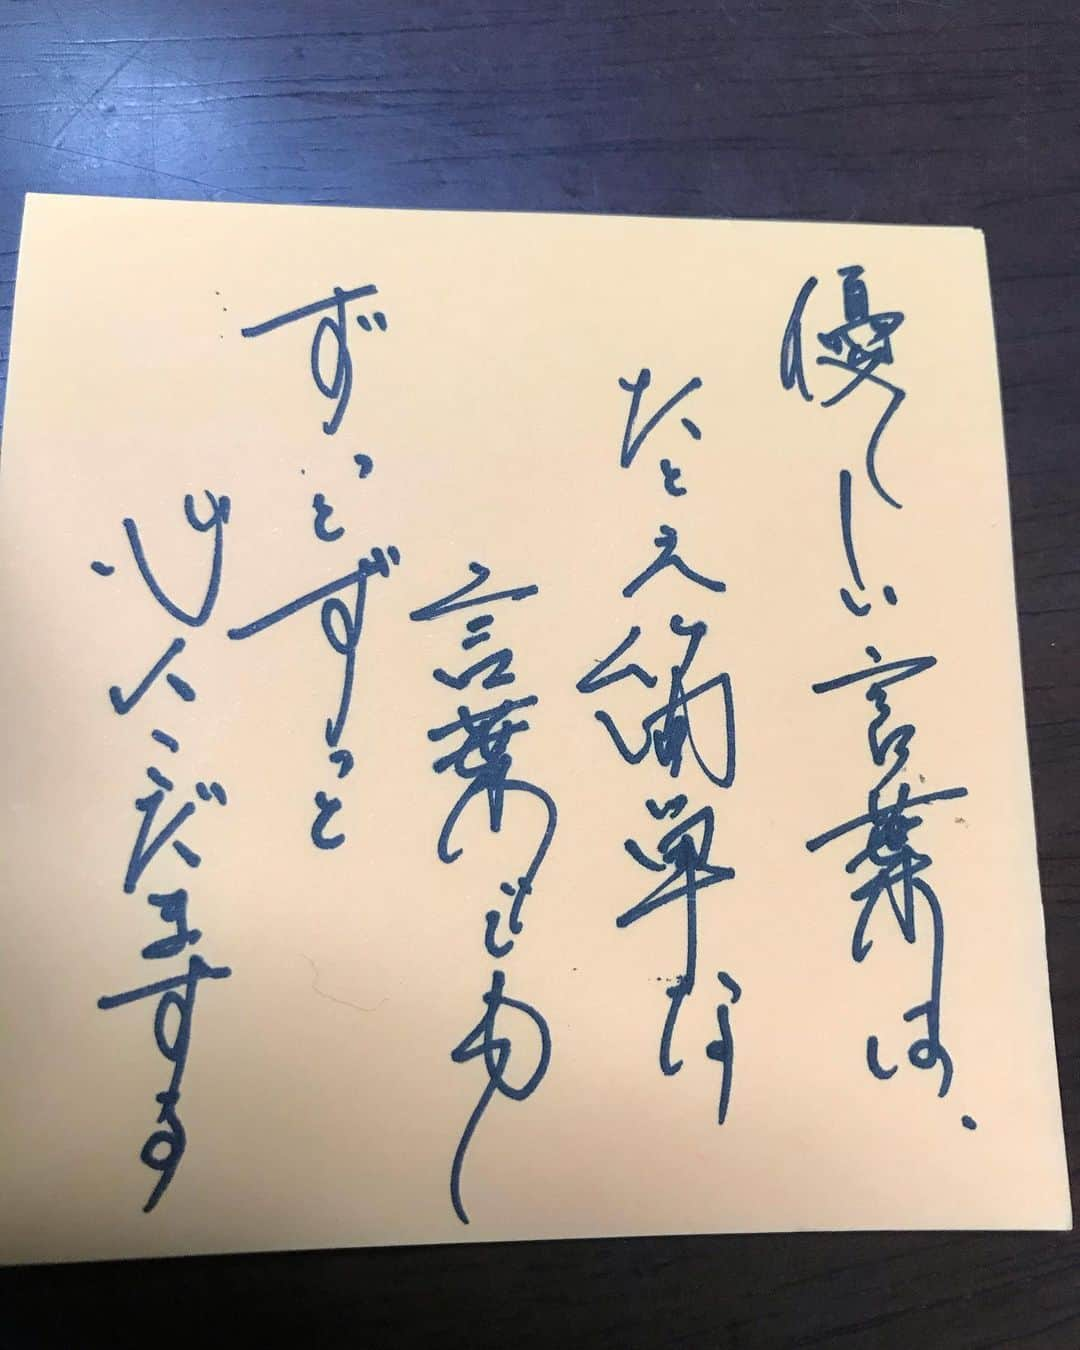 優しい言葉は、
たとえ簡単な
言葉でも
ずっとずっと
心にこだまする